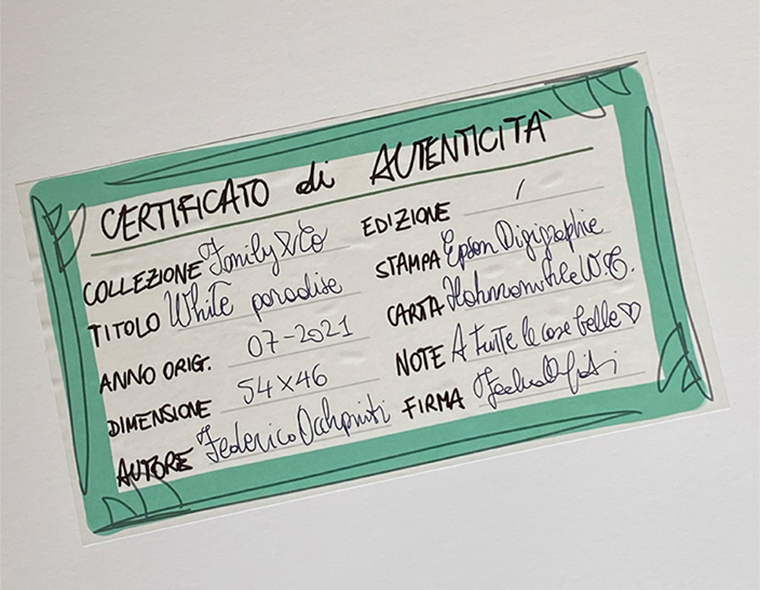 CERTIFICATO di AUTENTICITÀ
COLLEZIONE Family & Co
TITOLO White paradise
ANNO ORIG. 07-2021
DIMENSIONE 54x46
AUTORE Federico
EDIZIONE /
STAMPA Epson Digigraphie
CARTA Hahnemühle W.C.
NOTE A tutte le cose belle ♡
FIRMA